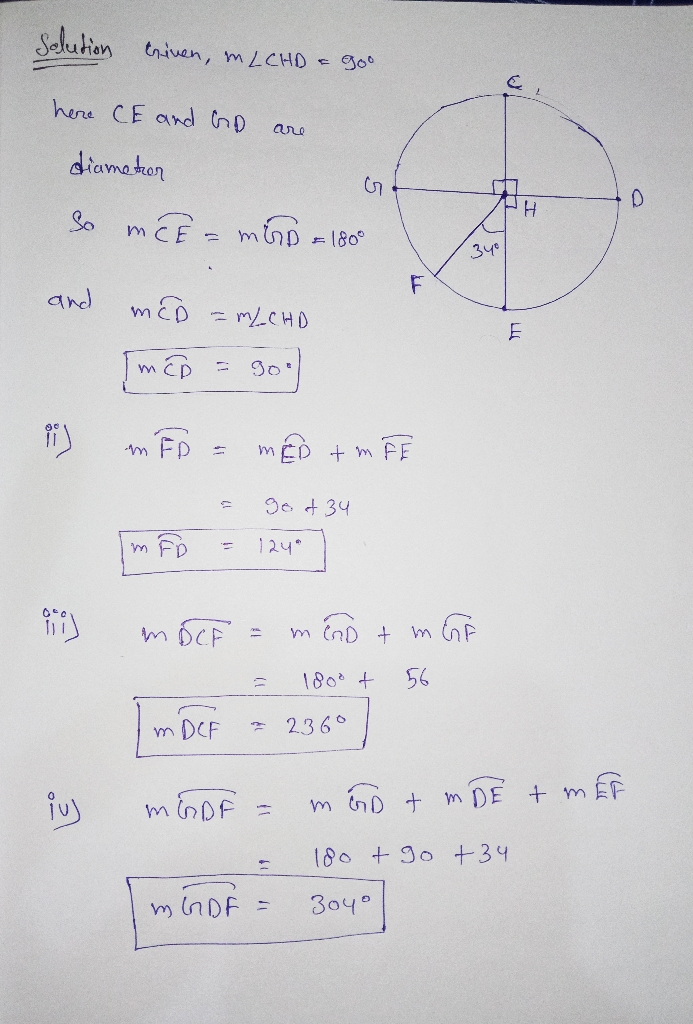 Solution Given, m∠CHD = 90°
here CE and GD are
diameter
So mCE = mGD = 180°
and mCD = m∠CHD
mCD = 90°
ii) mFD = mED + mFE
= 90 + 34
mFD = 124°
iii) mDCF = mGD + mGF
= 180° + 56
mDCF = 236°
iv) mGDF = mGD + mDE + mEF
= 180 + 90 + 34
mGDF = 304°
C
G
H
D
34°
F
E